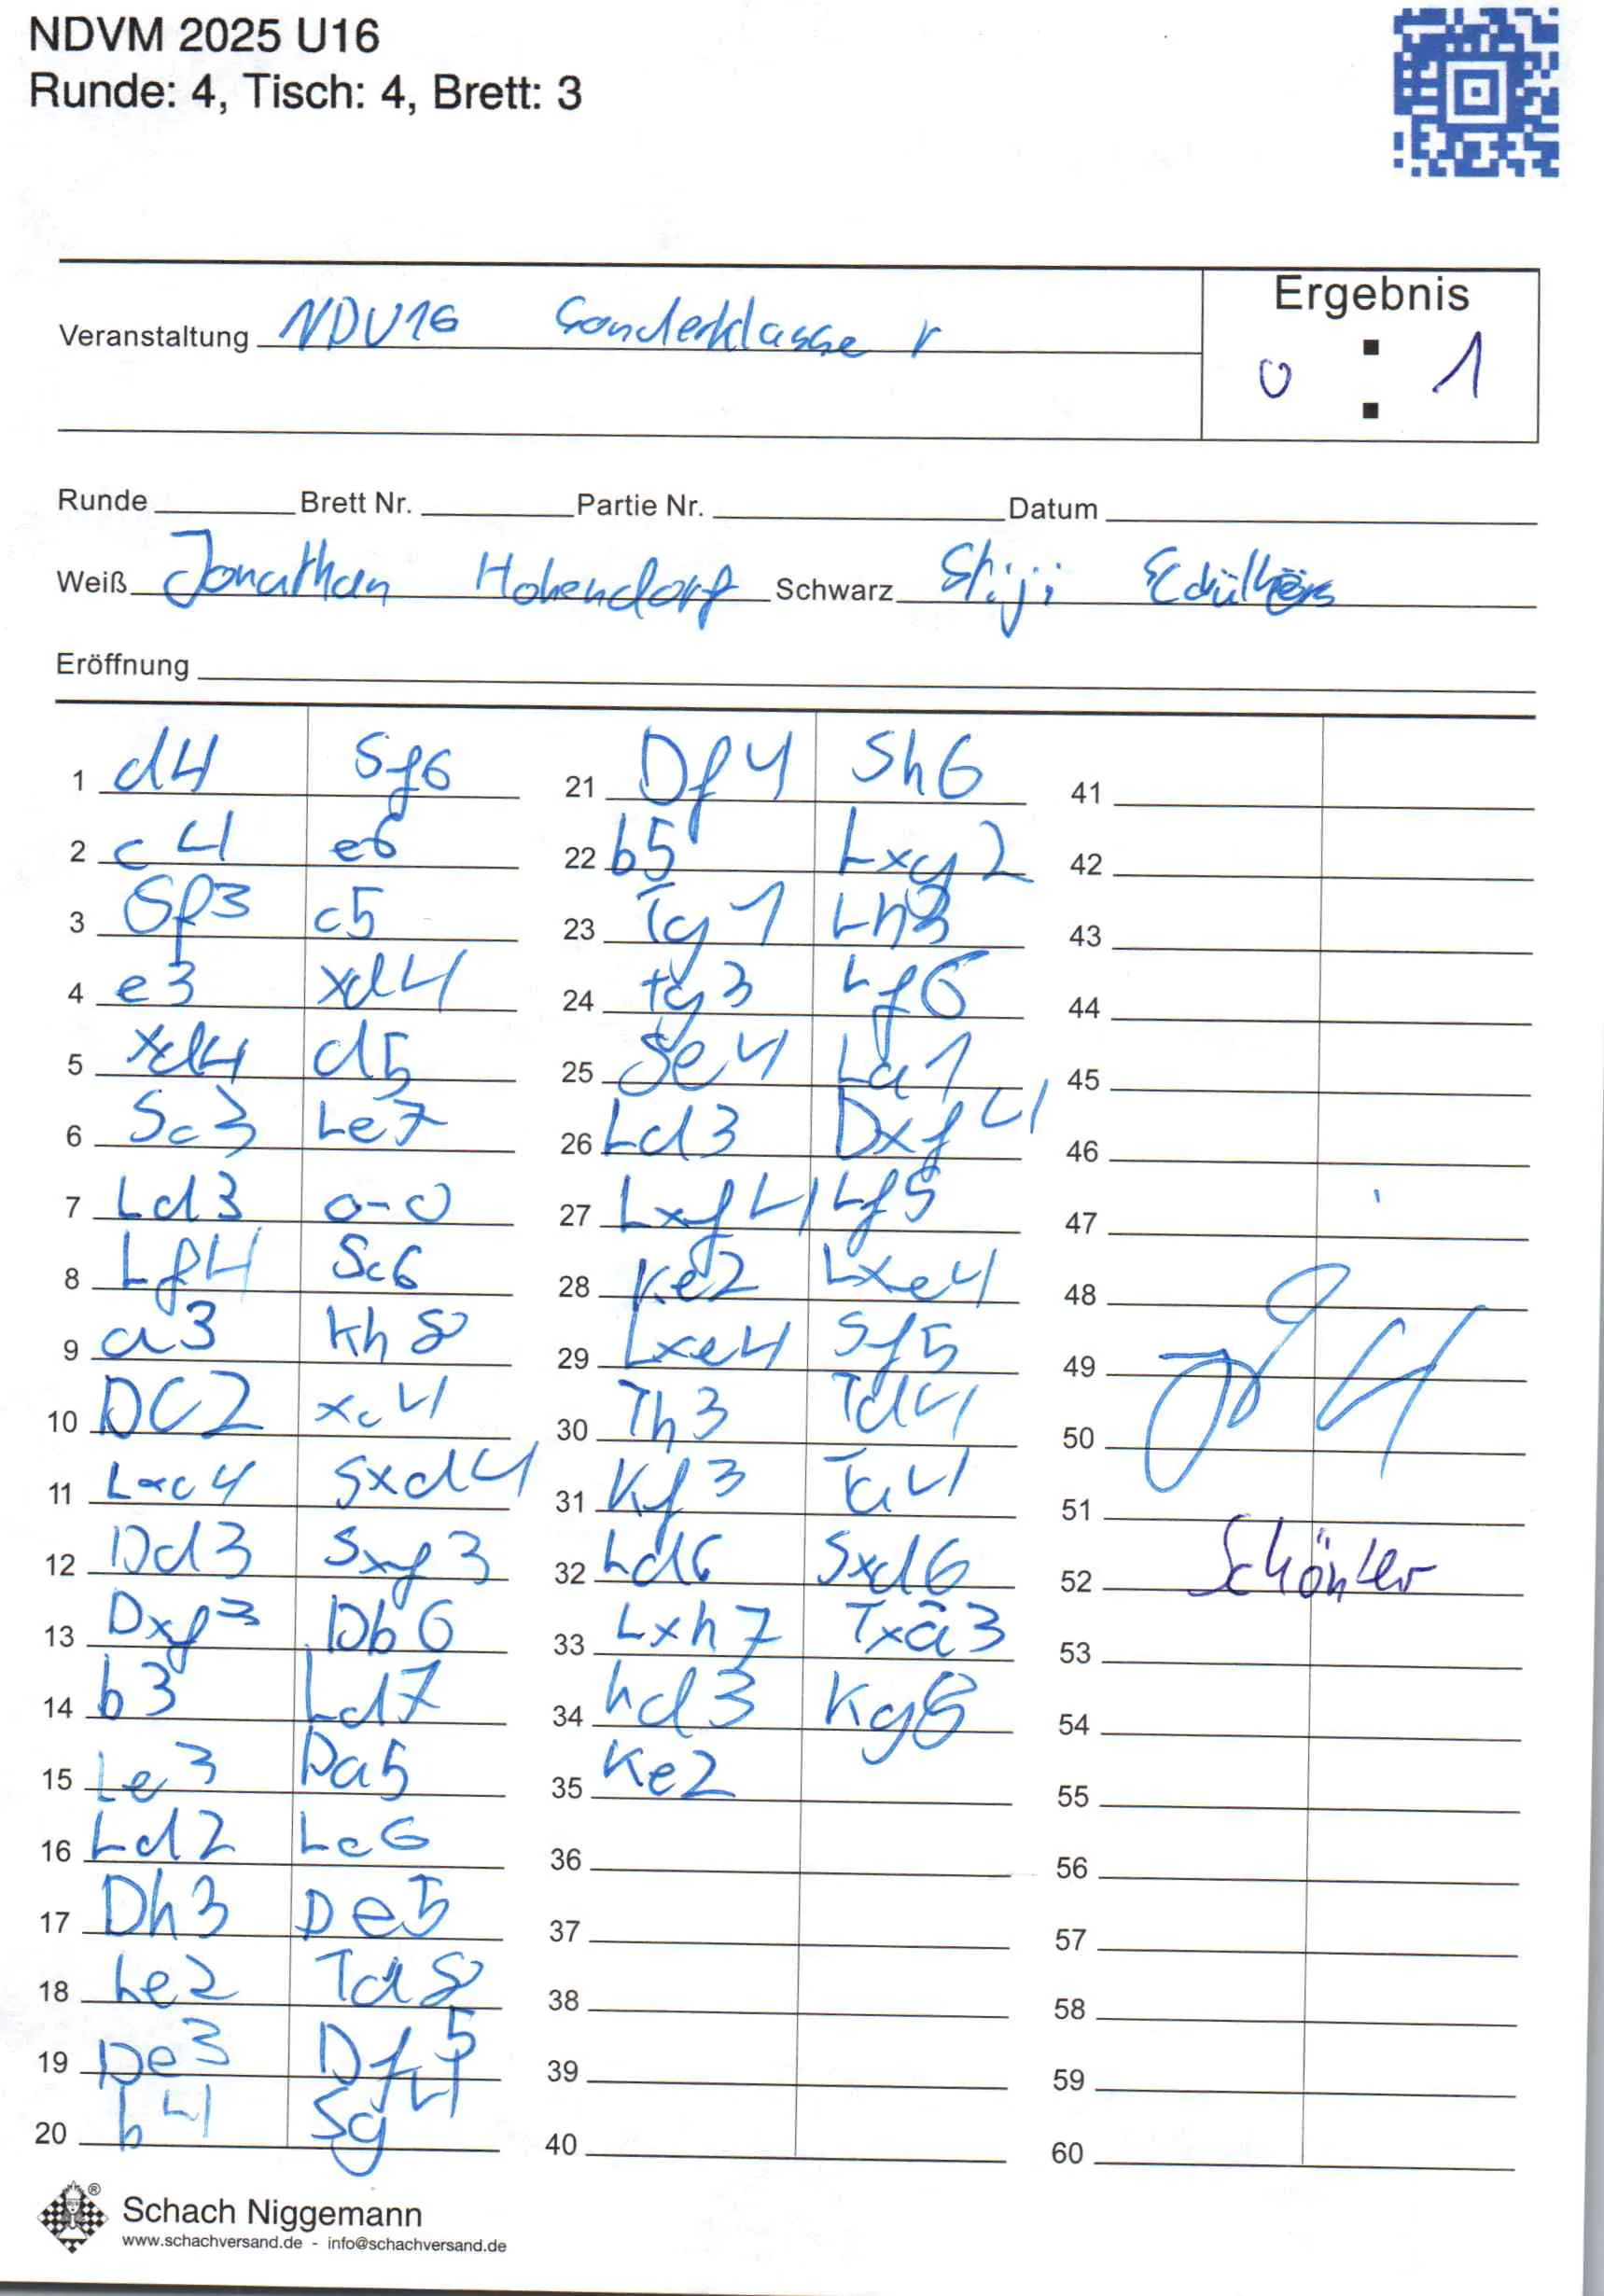 NDVM 2025 U16
Runde: 4, Tisch: 4, Brett: 3
Ergebnis
Veranstaltung NDU16 Sonderklasse
0 : 1
Runde Brett Nr. Partie Nr. Datum
Weiß Jonathan Hohendorf Schwarz
Eröffnung
1 d4 Sf6
2 c4 e6
3 Sf3 c5
4 e3 xd4
5 xd4 d5
6 Sc3 Le7
7 Ld3 0-0
8 Lf4 Sc6
9 a3 Kh8
10 DC2 xc4
11 Lxc4 Sxd4
12 Dd3 Sxf3
13 Dxf3 Db6
14 b3 Ld7
15 Le3 Da5
16 Ld2 Lc6
17 Dh3 De5
18 Le2 Td8
19 De3 Df5
20 b4 Sg4
21 Df4 Sh6
22 b5 Lxg2
23 Tg1 Lh3
24 Tg3 Lf6
25 Se4 La1
26 Ld3 Dxf4
27 Lxf4 Lf5
28 Ke2 Lxe4
29 Lxe4 Sf5
30 Th3 Td4
31 Kf3 Ta4
32 Ld6 Sxd6
33 Lxh7 Txa3
34 Ld3 Kg8
35 Ke2
36
37
38
39
40
41
42
43
44
45
46
47
48
49
50
51
52
53
54
55
56
57
58
59
60
Schach Niggemann
www.schachversand.de - info@schachversand.de